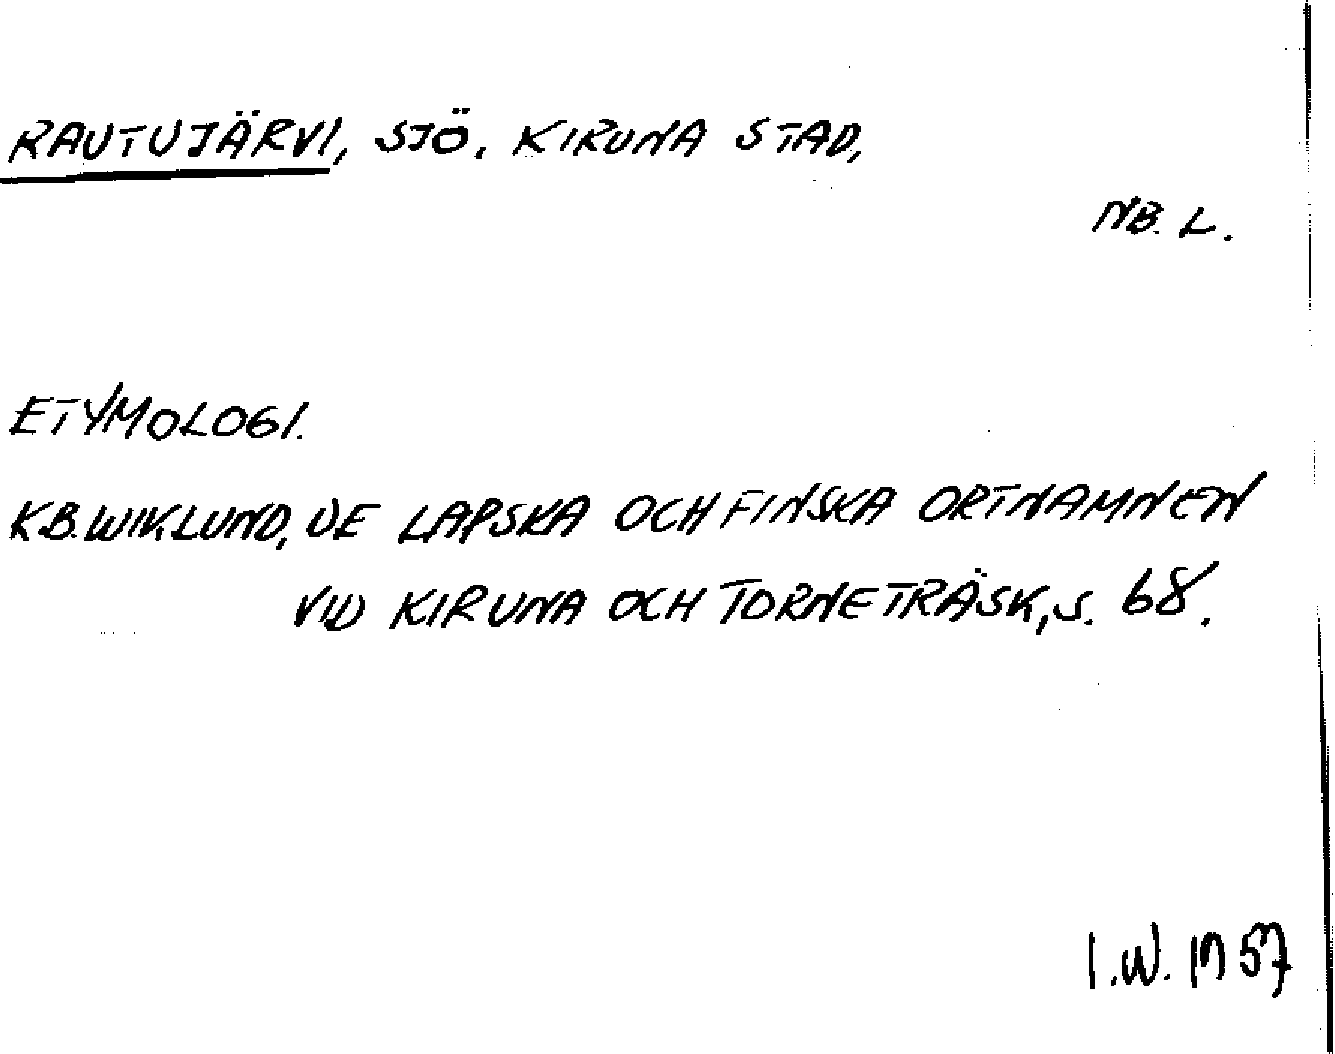 RAUTUJÄRVI, SJÖ. KIRUNA STAD,
NB. L.
ETYMOLOGI.
KB. WIKLUND, DE LAPSKA OCH FINSKA ORTNAMNEN
VID KIRUNA OCH TORNETRÄSK, S. 68.
I.W. 1957